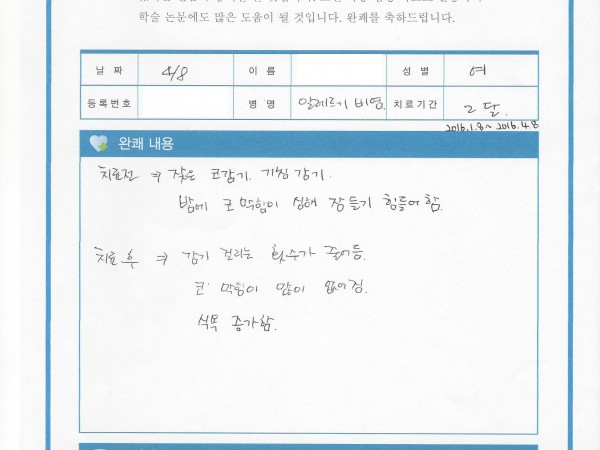 학술 논문에도 많은 도움이 될 것입니다. 완쾌를 축하드립니다.
날 짜 4/8 이 름 성 별 여
등록번호 병 명 알레르기 비염. 치료기간 2달.
2016.1.8~2016.4.8
완쾌 내용
치료전 ⇒ 잦은 코감기. 기침감기.
밤에 코 막힘이 심해 잠들기 힘들어함.
치료 후 ⇒ 감기 걸리는 횟수가 줄어듬.
코 막힘이 많이 없어짐.
식욕 증가함.